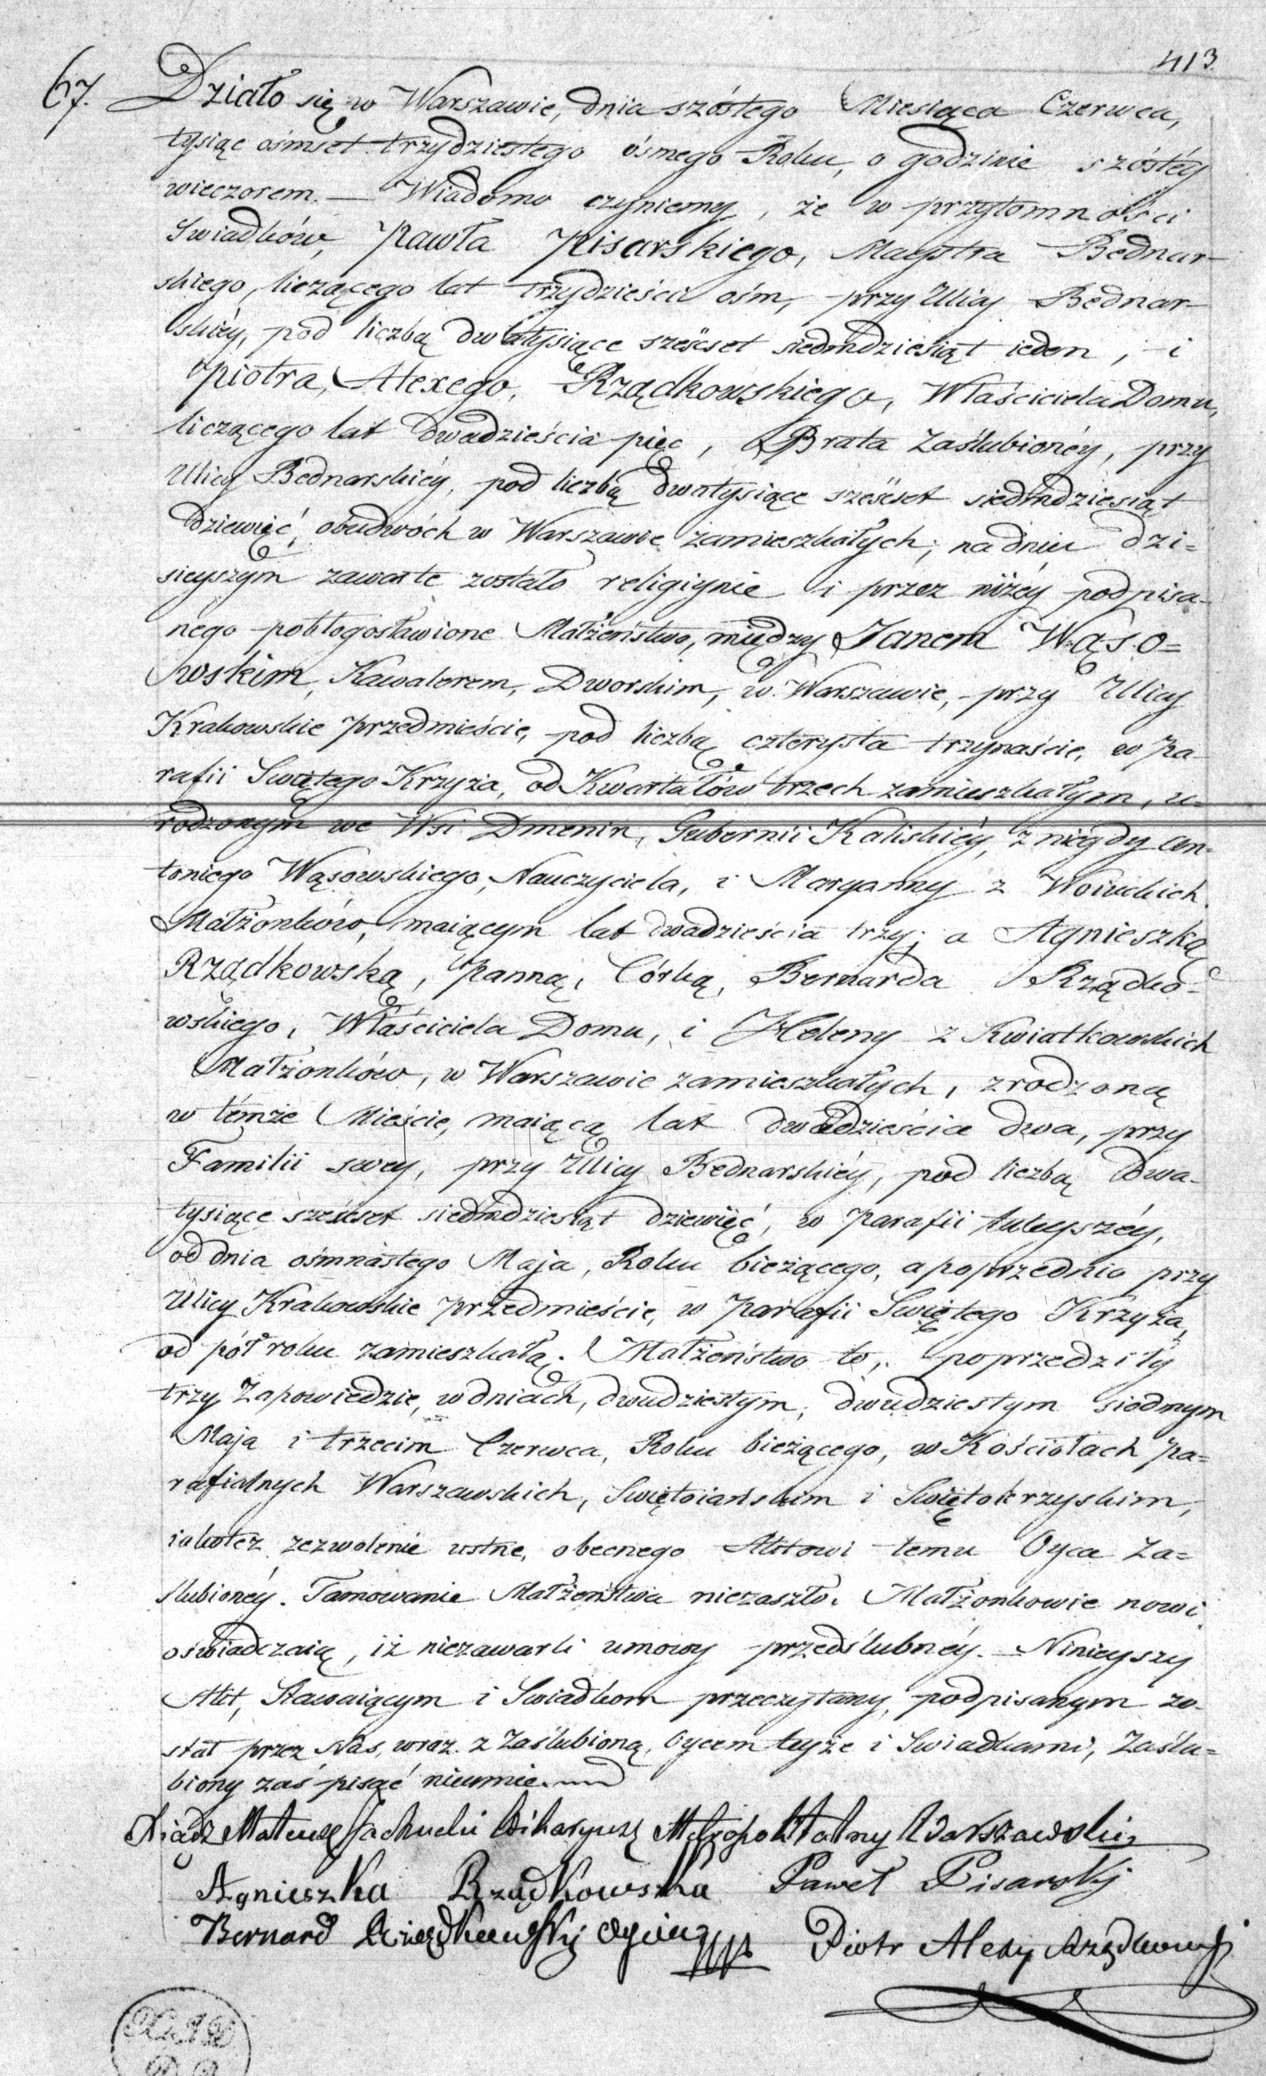 413
67. Działo się w Warszawie, dnia szóstego Miesiąca Czerwca,
tysiąc ośmset trzydziestego ósmego Roku, o godzinie szóstéy
wieczorem. — Wiadomo czyniemy, że w przytomności
Swiadków, Pawła Pisarskiego, Maystra Bednar-
skiego, liczącego lat trzydzieści ośm, przy Ulicy Bednar-
skiéy, pod liczbą dwatysiące sześćset siedmdziesiąt ieden, i
Piotra, Alexego, Rządkowskiego, Właściciela Domu,
liczącego lat dwadzieścia pięć, Brata Zaślubionéy, przy
Ulicy Bednarskiéy, pod liczbą dwatysiące sześćset siedmdziesiąt
dziewięć, obudwóch w Warszawie zamieszkałych; na dniu dzi=
sieyszym zawarte zostało religiynie i przez niżéy podpisa-
nego pobłogosławione Małżeństwo, między Janem Wąso=
wskim, Kawalerem, Dworskim, w Warszawie, przy Ulicy
Krakowskie Przedmieście, pod liczbą czterysta trzynaście, w Pa-
rafii Swiętego Krzyża, od Kwartałów trzech zamieszkałym, u-
rodzonym we Wsi Dmenin, Gubernii Kaliskiéy, z niegdy An-
toniego Wąsowskiego, Nauczyciela, i Maryanny z Woickich
Małżonków, maiącym lat dwadzieścia trzy; a Agnieszką
Rządkowską, Panną, Córką, Bernarda Rządko-
wskiego, Właściciela Domu, i Heleny z Kwiatkowskich
Małżonków, w Warszawie zamieszkałych, zrodzoną
w témże Mieście, maiącą lat dwadzieścia dwa, przy
Familii swey, przy Ulicy Bednarskiéy, pod liczbą dwa-
tysiące sześćset siedmdziesiąt dziewięć, w Parafii tuteyszéy,
od dnia ośmnastego Maja, Roku bieżącego, a poprzednio przy
Ulicy Krakowskie Przedmieście, w Parafii Swiętego Krzyża,
od pół roku zamieszkałą. Małżeństwo to, poprzedziły
trzy Zapowiedzie, w dniach, dwudziestym, dwudziestym siódmym
Maja i trzecim Czerwca, Roku bieżącego, w Kościołach Pa=
rafialnych Warszawskich, Swiętoiańskim i Swiętokrzyskim,
iakotéz zezwolenie ustne, obecnego Aktowi temu Oyca Za=
ślubionéy. Tamowanie Małżeństwa niezaszło. Małżonkowie nowi
oświadczaią, iż niezawarli umowy przedślubnéy. — Ninieyszy
Akt, Stawaiącym i Swiadkom przeczytany, podpisanym zo-
stał przez Nas, wraz z Zaślubioną, Oycem teyże i Swiadkami, Zaślu=
biony zaś pisać nieumie.
Xiądz Mateusz Wikaryusz Metropolitalny Warszawski
Agnieszka Rządkowska Paweł Pisarski
Bernard Rządkowski Oyciec Piotr Alexy Rządkowski